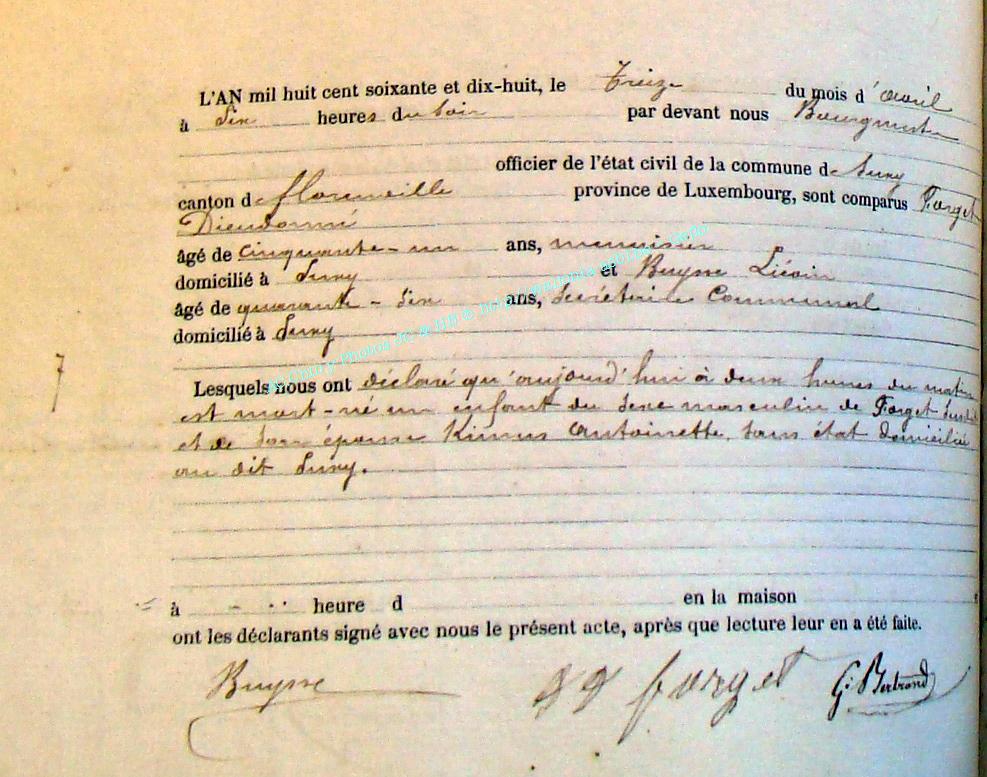 L'AN mil huit cent soixante et dix-huit, le Treize du mois d'avril
à Six heures du Soir par devant nous Bourgmestre
officier de l'état civil de la commune de Suxy
canton de florenville province de Luxembourg, sont comparus Forget
Dieudonné
âgé de cinquante-un ans, menuisier
domicilié à Suxy et Buysse Liévin
âgé de quarante-Six ans, Secrétaire Communal
domicilié à Suxy
7
Lesquels nous ont déclaré qu'aujourd'hui à deux heures du matin
est mort-né un enfant du Sexe masculin de Forget
et de Son épouse Antoinette, Sans état domiciliés
au dit Suxy.
à heure d en la maison
ont les déclarants signé avec nous le présent acte, après que lecture leur en a été faite.
Buysse DD forget G. Bertrand